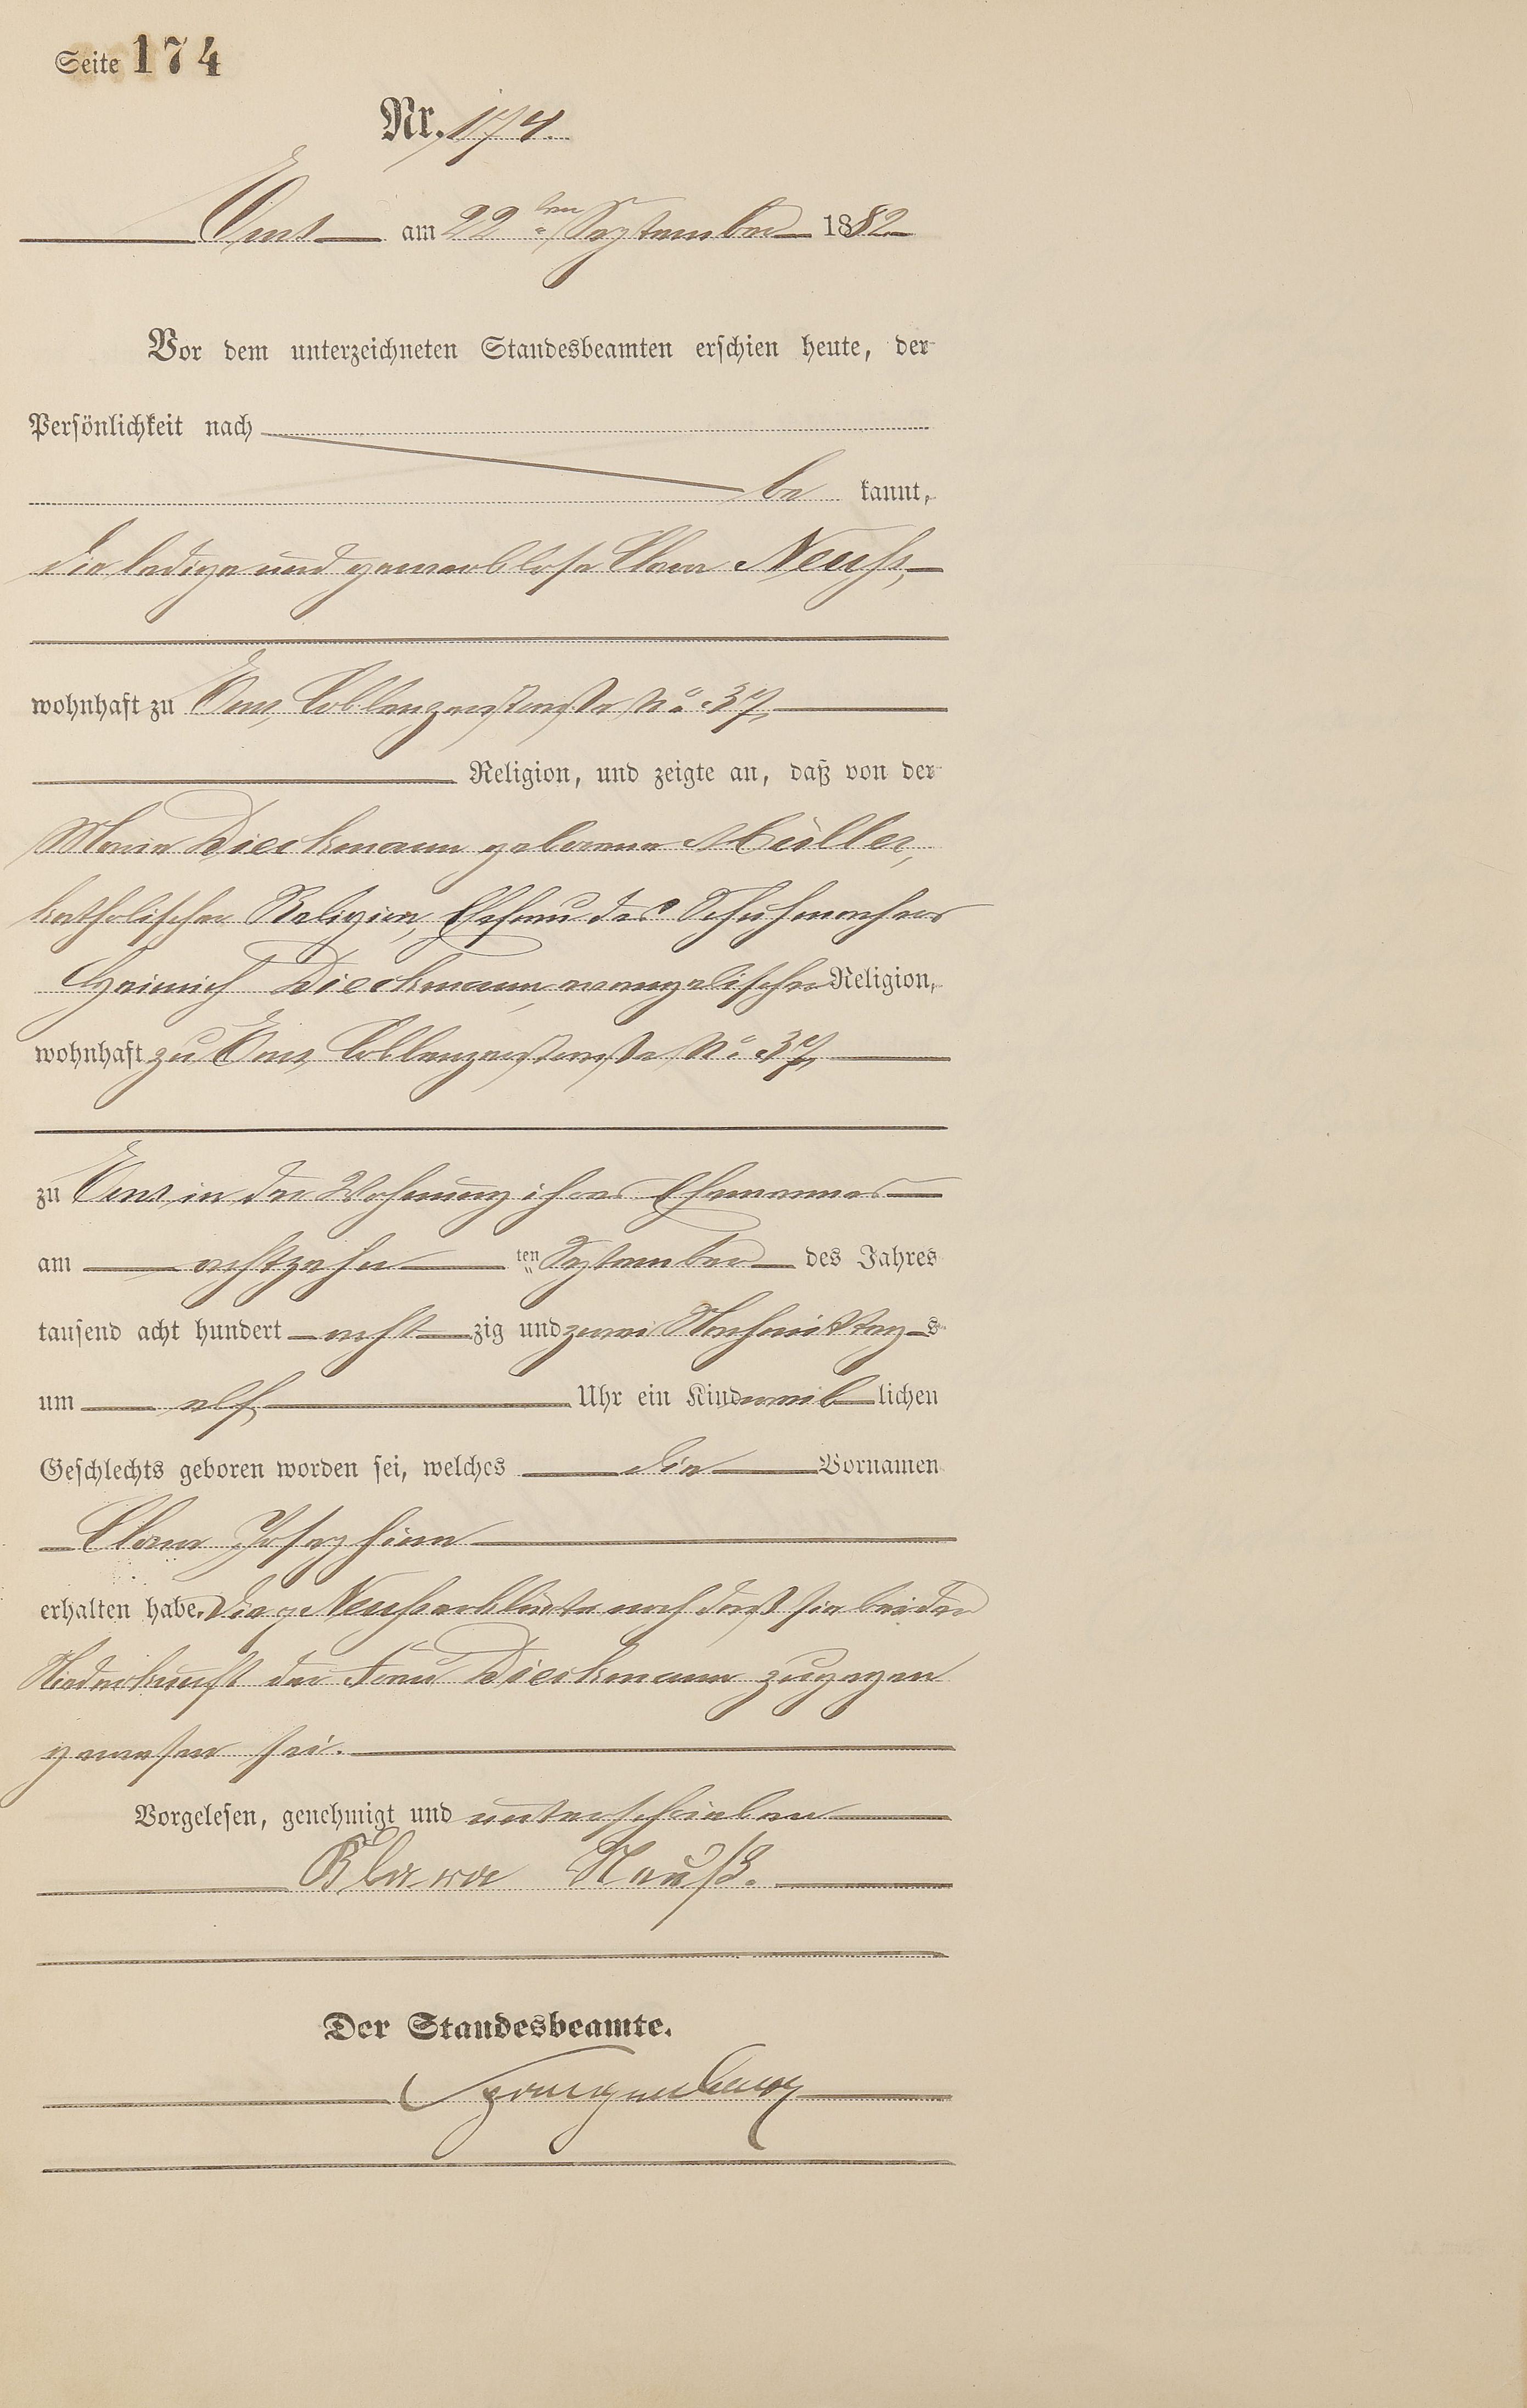 Seite 174
Nr. 174.
Ems am 22ten September 1882
Vor dem unterzeichneten Standesbeamten erschien heute, der
Persönlichkeit nach
be kannt,
die ledige und gewerblose Clara Neuss,
wohnhaft zu Ems, Coblenzerstraße No. 37,
Religion, und zeigte an, daß von der
Maria Dieckmann geborene Müller,
katholischer Religion, Ehefrau des Schuhmachers
Heinrich Dieckmann, evangelischer Religion,
wohnhaft zu Ems, Coblenzerstraße No. 37,
zu Ems in der Wohnung ihres Ehemannes
am achtzehn ten September des Jahres
tausend acht hundert acht zig und zwei Nachmittag s
um elf Uhr ein Kind weib lichen
Geschlechts geboren worden sei, welches die Vornamen
Clara Josephina
erhalten habe. Die p. Neuss erklärte noch daß sie bei der
Niederkunft der Frau Dieckmann zugegen
gewesen sei.
Vorgelesen, genehmigt und unterschrieben
Klara Neuß.
Der Standesbeamte.